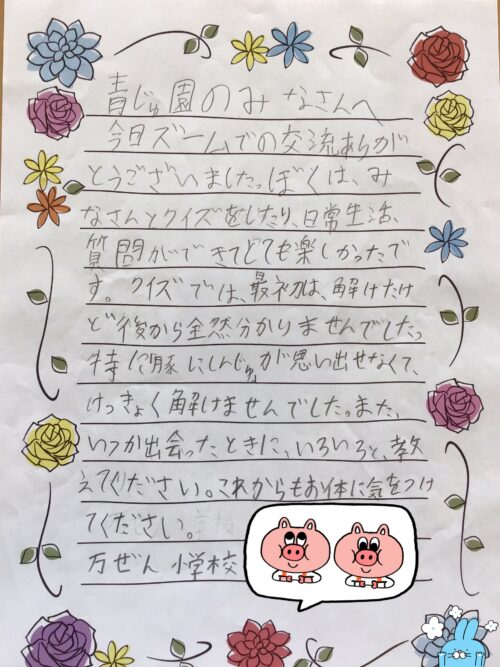 青じゅ園のみなさんへ
今日ズームでの交流ありが
とうございました。ぼくは、み
なさんとクイズをしたり、日常生活、
質問ができてとても楽しかったで
す。クイズでは、最初は、解けたけ
ど後から全然分かりませんでした。
特に「豚にしんじゅ」が思い出せなくて、
けっきょく解けませんでした。また、
いつか出会ったときに、いろいろと、教
えてください。これからもお体に気をつけ
てください。
万ぜん小学校